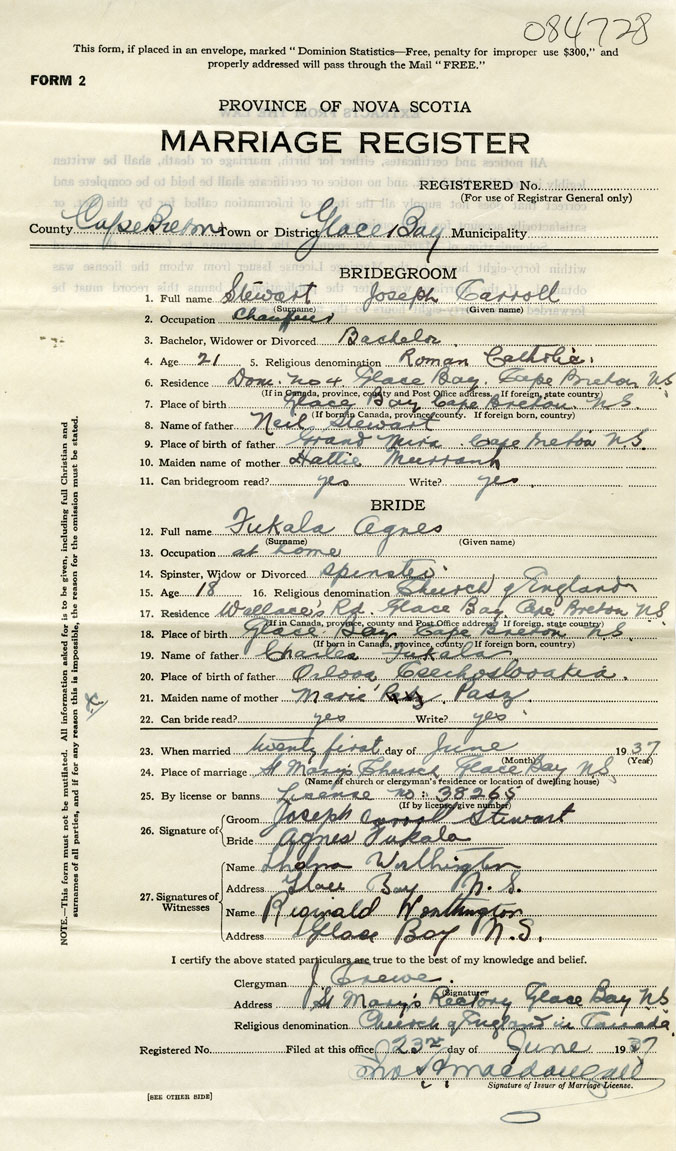 084728
This form, if placed in an envelope, marked "Dominion Statistics—Free, penalty for improper use $300," and
properly addressed will pass through the Mail "FREE."
FORM 2
PROVINCE OF NOVA SCOTIA
MARRIAGE REGISTER
REGISTERED No.
(For use of Registrar General only)
County Cape Breton Town or District Glace Bay Municipality
BRIDEGROOM
1. Full name Stewart Joseph Carroll
(Surname) (Given name)
2. Occupation Chauffeur
3. Bachelor, Widower or Divorced Bachelor
4. Age 21 5. Religious denomination Roman Catholic
6. Residence Dom. No 4. Glace Bay, Cape Breton NS
(If in Canada, province, county and Post Office address. If foreign, state country)
7. Place of birth Glace Bay Cape Breton N.S.
(If born in Canada, province, county. If foreign born, country)
8. Name of father Neil Stewart
9. Place of birth of father Grand Mira Cape Breton N.S.
10. Maiden name of mother Hattie
11. Can bridegroom read? yes Write? yes
BRIDE
12. Full name Fukala Agnes
(Surname) (Given name)
13. Occupation at home
14. Spinster, Widow or Divorced spinster
15. Age 18 16. Religious denomination Church of England
17. Residence Wallace's Rd. Glace Bay Cape Breton NS
(If in Canada, province, county and Post Office address. If foreign, state country)
18. Place of birth Glace Bay Cape Breton N.S.
(If born in Canada, province, county. If foreign born, country)
19. Name of father Charles Fukala
20. Place of birth of father Orlova Czechoslovakia.
21. Maiden name of mother Marie Pasz
22. Can bride read? yes Write? yes
23. When married twenty first day of June 1937
(Month) (Year)
24. Place of marriage St Mary's Church Glace Bay NS
(Name of church or clergyman's residence or location of dwelling house)
25. By license or banns License no: 38265
(If by license, give number)
26. Signature of Groom Joseph Carroll Stewart
Bride Agnes Fukala
27. Signatures of Witnesses Name Worthington
Address Glace Bay N.S.
Name Reginald Worthington
Address Glace Bay N.S.
I certify the above stated particulars are true to the best of my knowledge and belief.
Clergyman J. Crewe.
(Signature)
Address St Mary's Rectory Glace Bay NS
Religious denomination Church of England in Canada.
Registered No. Filed at this office 23rd day of June 1937
Jno A Macdougall
Signature of Issuer of Marriage License.
[SEE OTHER SIDE]
NOTE.—This form must not be mutilated. All information asked for is to be given, including full Christian and
surnames of all parties, and if for any reason this is impossible, the reason for the omission must be stated.